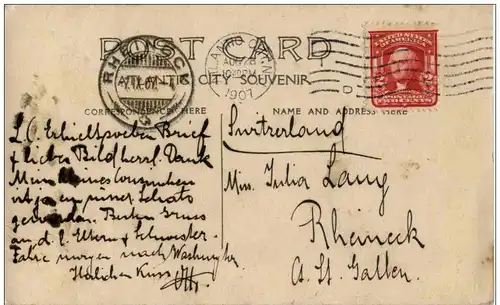 POST CARD
ATLANTIC CITY SOUVENIR.
CORRESPONDENCE HERE
NAME AND ADDRESS HERE
RHEINECK
7.IX.07.
ATLANTIC CITY N.J.
AUG 28
1907
UNITED STATES
OF AMERICA
TWO CENTS
L. C. Erhielt soeben Brief
& liebes Bild herzl. Dank
Mein kleines
ist ja ein süsser Schatz
geworden. Besten Gruss
an d. l. Eltern & Schwester.
Fahre morgen nach Washington
Herzlichen Kuss
Switzerland
Miss. Julia Lang
Rheineck
Ct. St. Gallen.